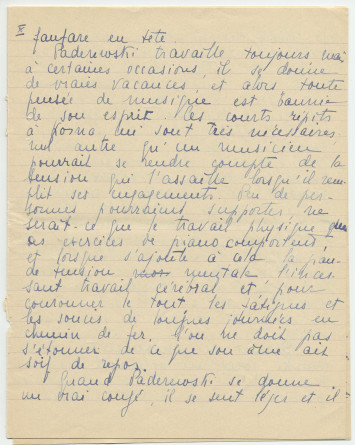 X
fanfare en tête.
Paderewski travaille toujours mais
à certaines occasions, il se donne
de vraies vacances, et alors toute
pensée de musique est bannie
de son esprit. Les courts répits
à Morges lui sont très nécessaires
nul autre qu'un musicien
pourrait se rendre compte de la
tension qui l'assaille lorsqu'il rem-
plit ses engagements. Peu de per-
sonnes pourraient supporter, ne
serait-ce que le travail physique que
ses exercices de piano comportent,
et lorsque s'ajoute à cela la gran-
de tension mentale l'inces-
sant travail cérébral et, pour
couronner le tout, les fatigues et
les soucis de longues journées en
chemin de fer, l'on ne doit pas
s'étonner de ce que son âme ait
soif de repos.
Quand Paderewski se donne
un vrai congé, il se sent léger et il